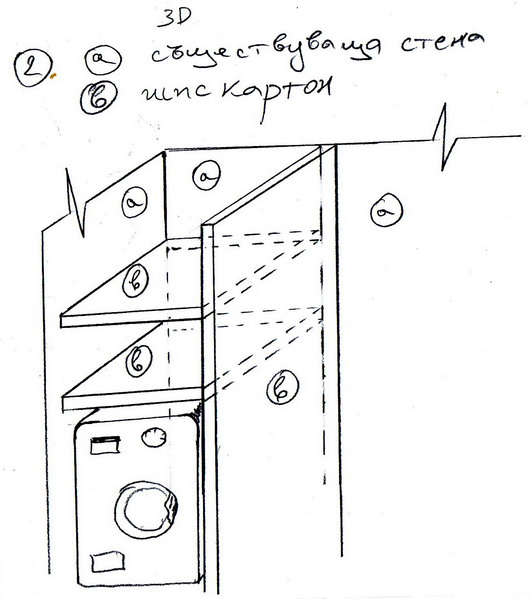 3D
2. а съществуваща стена
в гипс картон
а
а
а
в
в
в